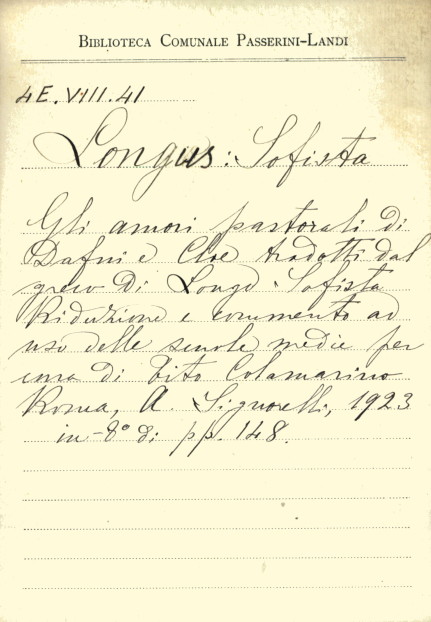 BIBLIOTECA COMUNALE PASSERINI-LANDI
4E.VIII.41
Longus: Sofista
Gli amori pastorali di
Dafni e Cloe tradotti dal
greco di Longo Sofista
Riduzione e commento ad
uso delle scuole medie per
cura di Tito Colamarino
Roma, A. Signorelli, 1923
in-8° di pp. 148.